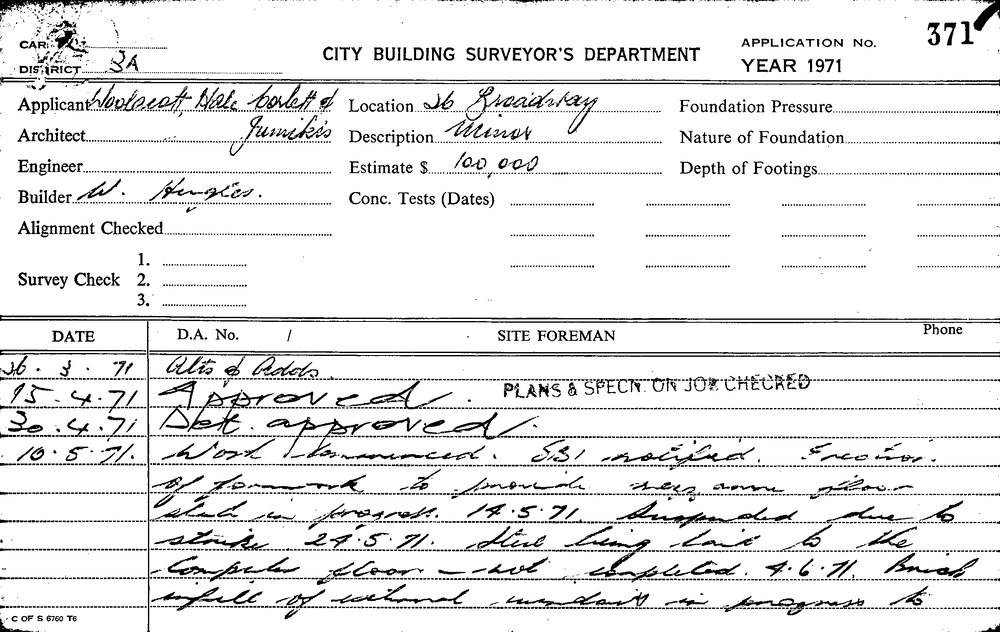 CARD
DISTRICT 3A
CITY BUILDING SURVEYOR'S DEPARTMENT
APPLICATION No. 371
YEAR 1971
Applicant Woolacott, Hale Corlett &
Location 26 Broadway
Foundation Pressure
Architect Jumikis
Description Minor
Nature of Foundation
Engineer
Estimate $ 100,000
Depth of Footings
Builder W. Hughes.
Conc. Tests (Dates)
Alignment Checked
Survey Check 1.
2.
3.
DATE D.A. No. / SITE FOREMAN Phone
26. 3. 71 Alts & Adds.
15. 4. 71 Approved. PLANS & SPECN. ON JOB CHECKED
30. 4. 71 Det. approved.
10. 5. 71. Work commenced. SBI notified. Erection
of formwork to provide mezzanine floor
slab in progress. 14.5.71. Suspended due to
strike 24.5.71. Steel being laid to the
computer floor — not completed. 4.6.71. Brick
infill of external windows in progress to
C OF S 6760 T6